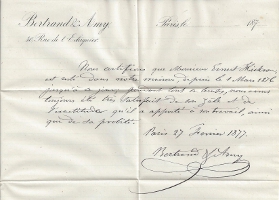 Bertrand & Amy
Paris le 187
40 Rue de l'Echiquier
Nous certifions que Monsieur Ernest
est dans notre maison depuis le 1 Mars 1876
jusqu'à ce jour et nous avons
toujours été très satisfait de son zèle et de
l'exactitude qu'il a apporté à son travail, ainsi
que de sa probité.
Paris 27 Février 1877.
Bertrand & Amy